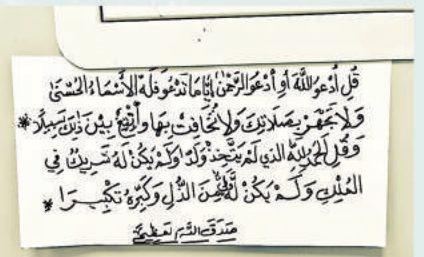 قُلِ ٱدْعُوا اللَّهَ أَوِ ٱدْعُوا الرَّحْمٰنَ أَيًّا مَا تَدْعُوا فَلَهُ الْأَسْمَاءُ الْحُسْنَىٰ
وَلَا تَجْهَرْ بِصَلَاتِكَ وَلَا تُخَافِتْ بِهَا وَٱبْتَغِ بَيْنَ ذَٰلِكَ سَبِيلًا *
وَقُلِ الْحَمْدُ لِلَّهِ الَّذِي لَمْ يَتَّخِذْ وَلَدًا وَلَمْ يَكُنْ لَهُ شَرِيكٌ فِي
الْمُلْكِ وَلَمْ يَكُنْ لَهُ وَلِيٌّ مِنَ الذُّلِّ وَكَبِّرْهُ تَكْبِيرًا *
صَدَقَ اللَّهُ الْعَظِيمُ